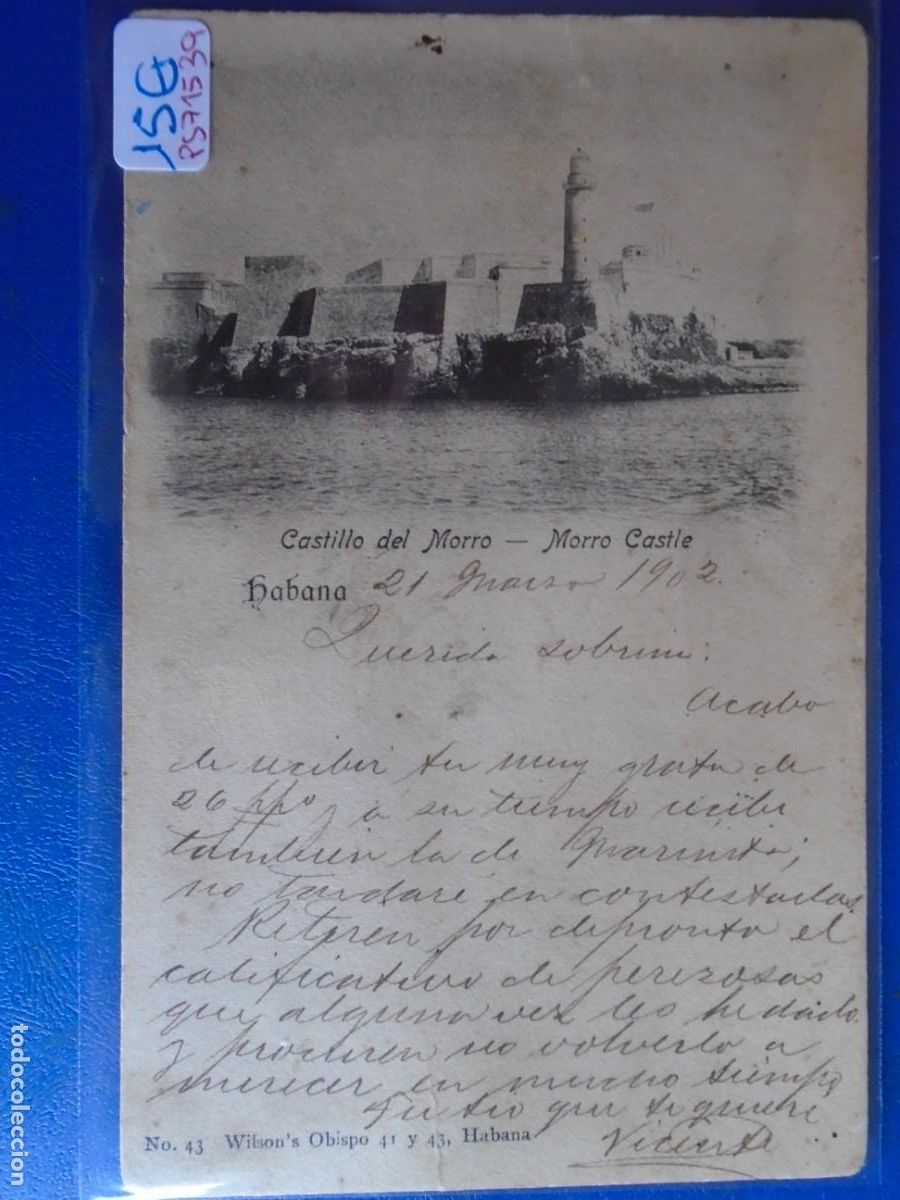 15€
PS71539
Castillo del Morro — Morro Castle
Habana 21 Marzo 1902.
Querida sobrina:
Acabo
de recibir tu muy grata de
26 ppº y a su tiempo recibi
tambien la de Marinita;
no tardaré en contestarlas.
Retiren por depronto el
calificativo de perezosas
que alguna vez les he dado
y procuren no volverlo a
merecer en mucho tiempo,
Tu tio que te quiere
Vicente
No. 43 Wilson's Obispo 41 y 43, Habana
todocoleccion.net